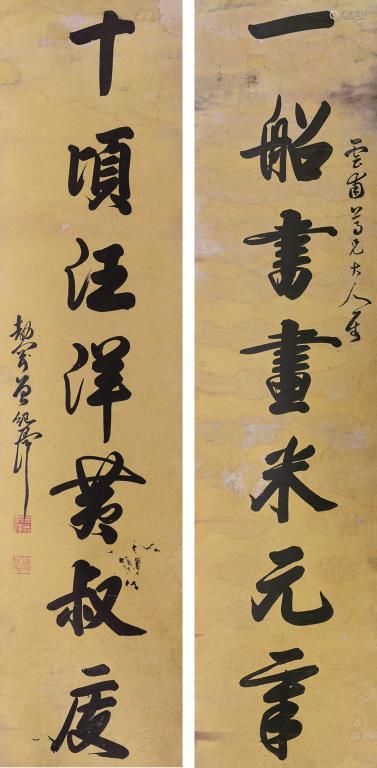 雲甫尊兄大人屬
一船書畫米元章
十頃汪洋黃叔度
劼剛曾紀澤